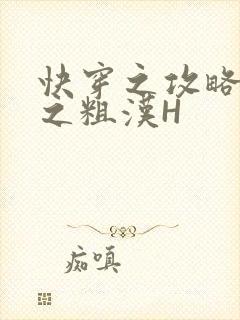 快穿之攻略
之粗漢H
痴嗔